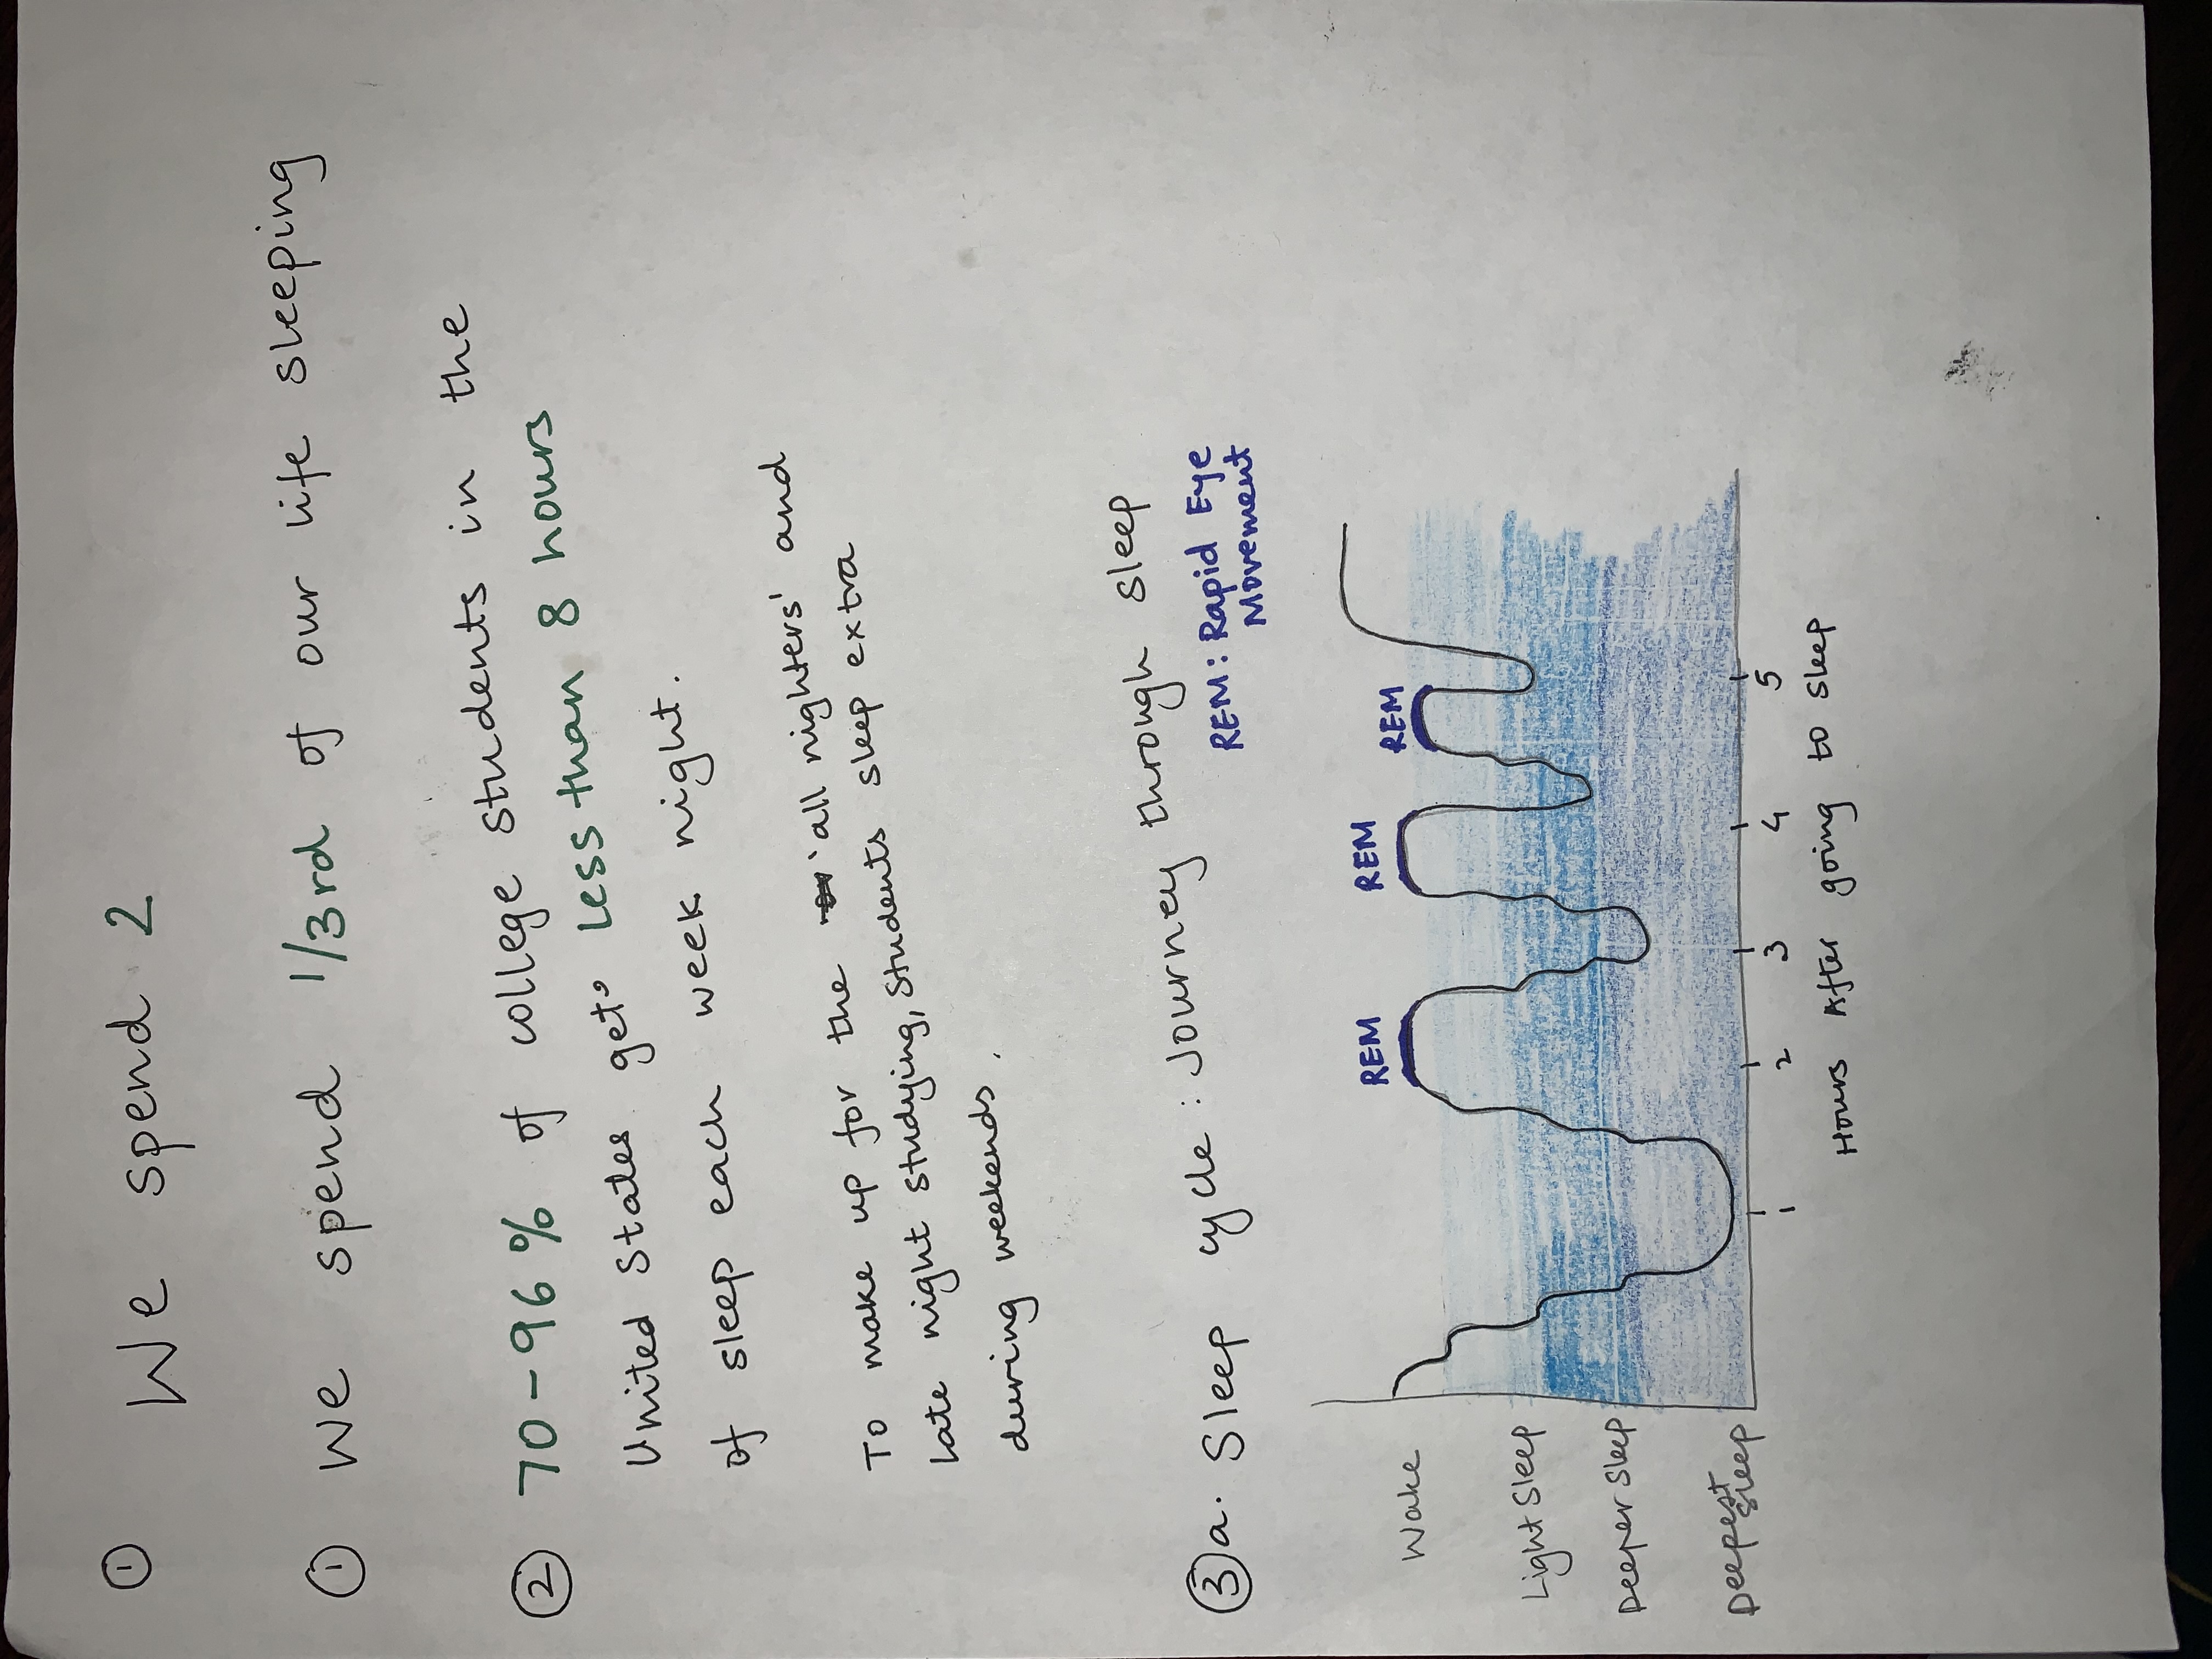 ① We spend 2
① We spend 1/3rd of our life sleeping
② 70-96% of college students in the
United States get less than 8 hours
of sleep each week night.
To make up for the 'all nighters' and
late night studying, students sleep extra
during weekends.
③a. Sleep cycle: Journey through sleep
REM: Rapid Eye
Movement
REM REM REM
Wake
Light Sleep
Deeper Sleep
Deepest
Sleep
1 2 3 4 5
Hours After going to sleep